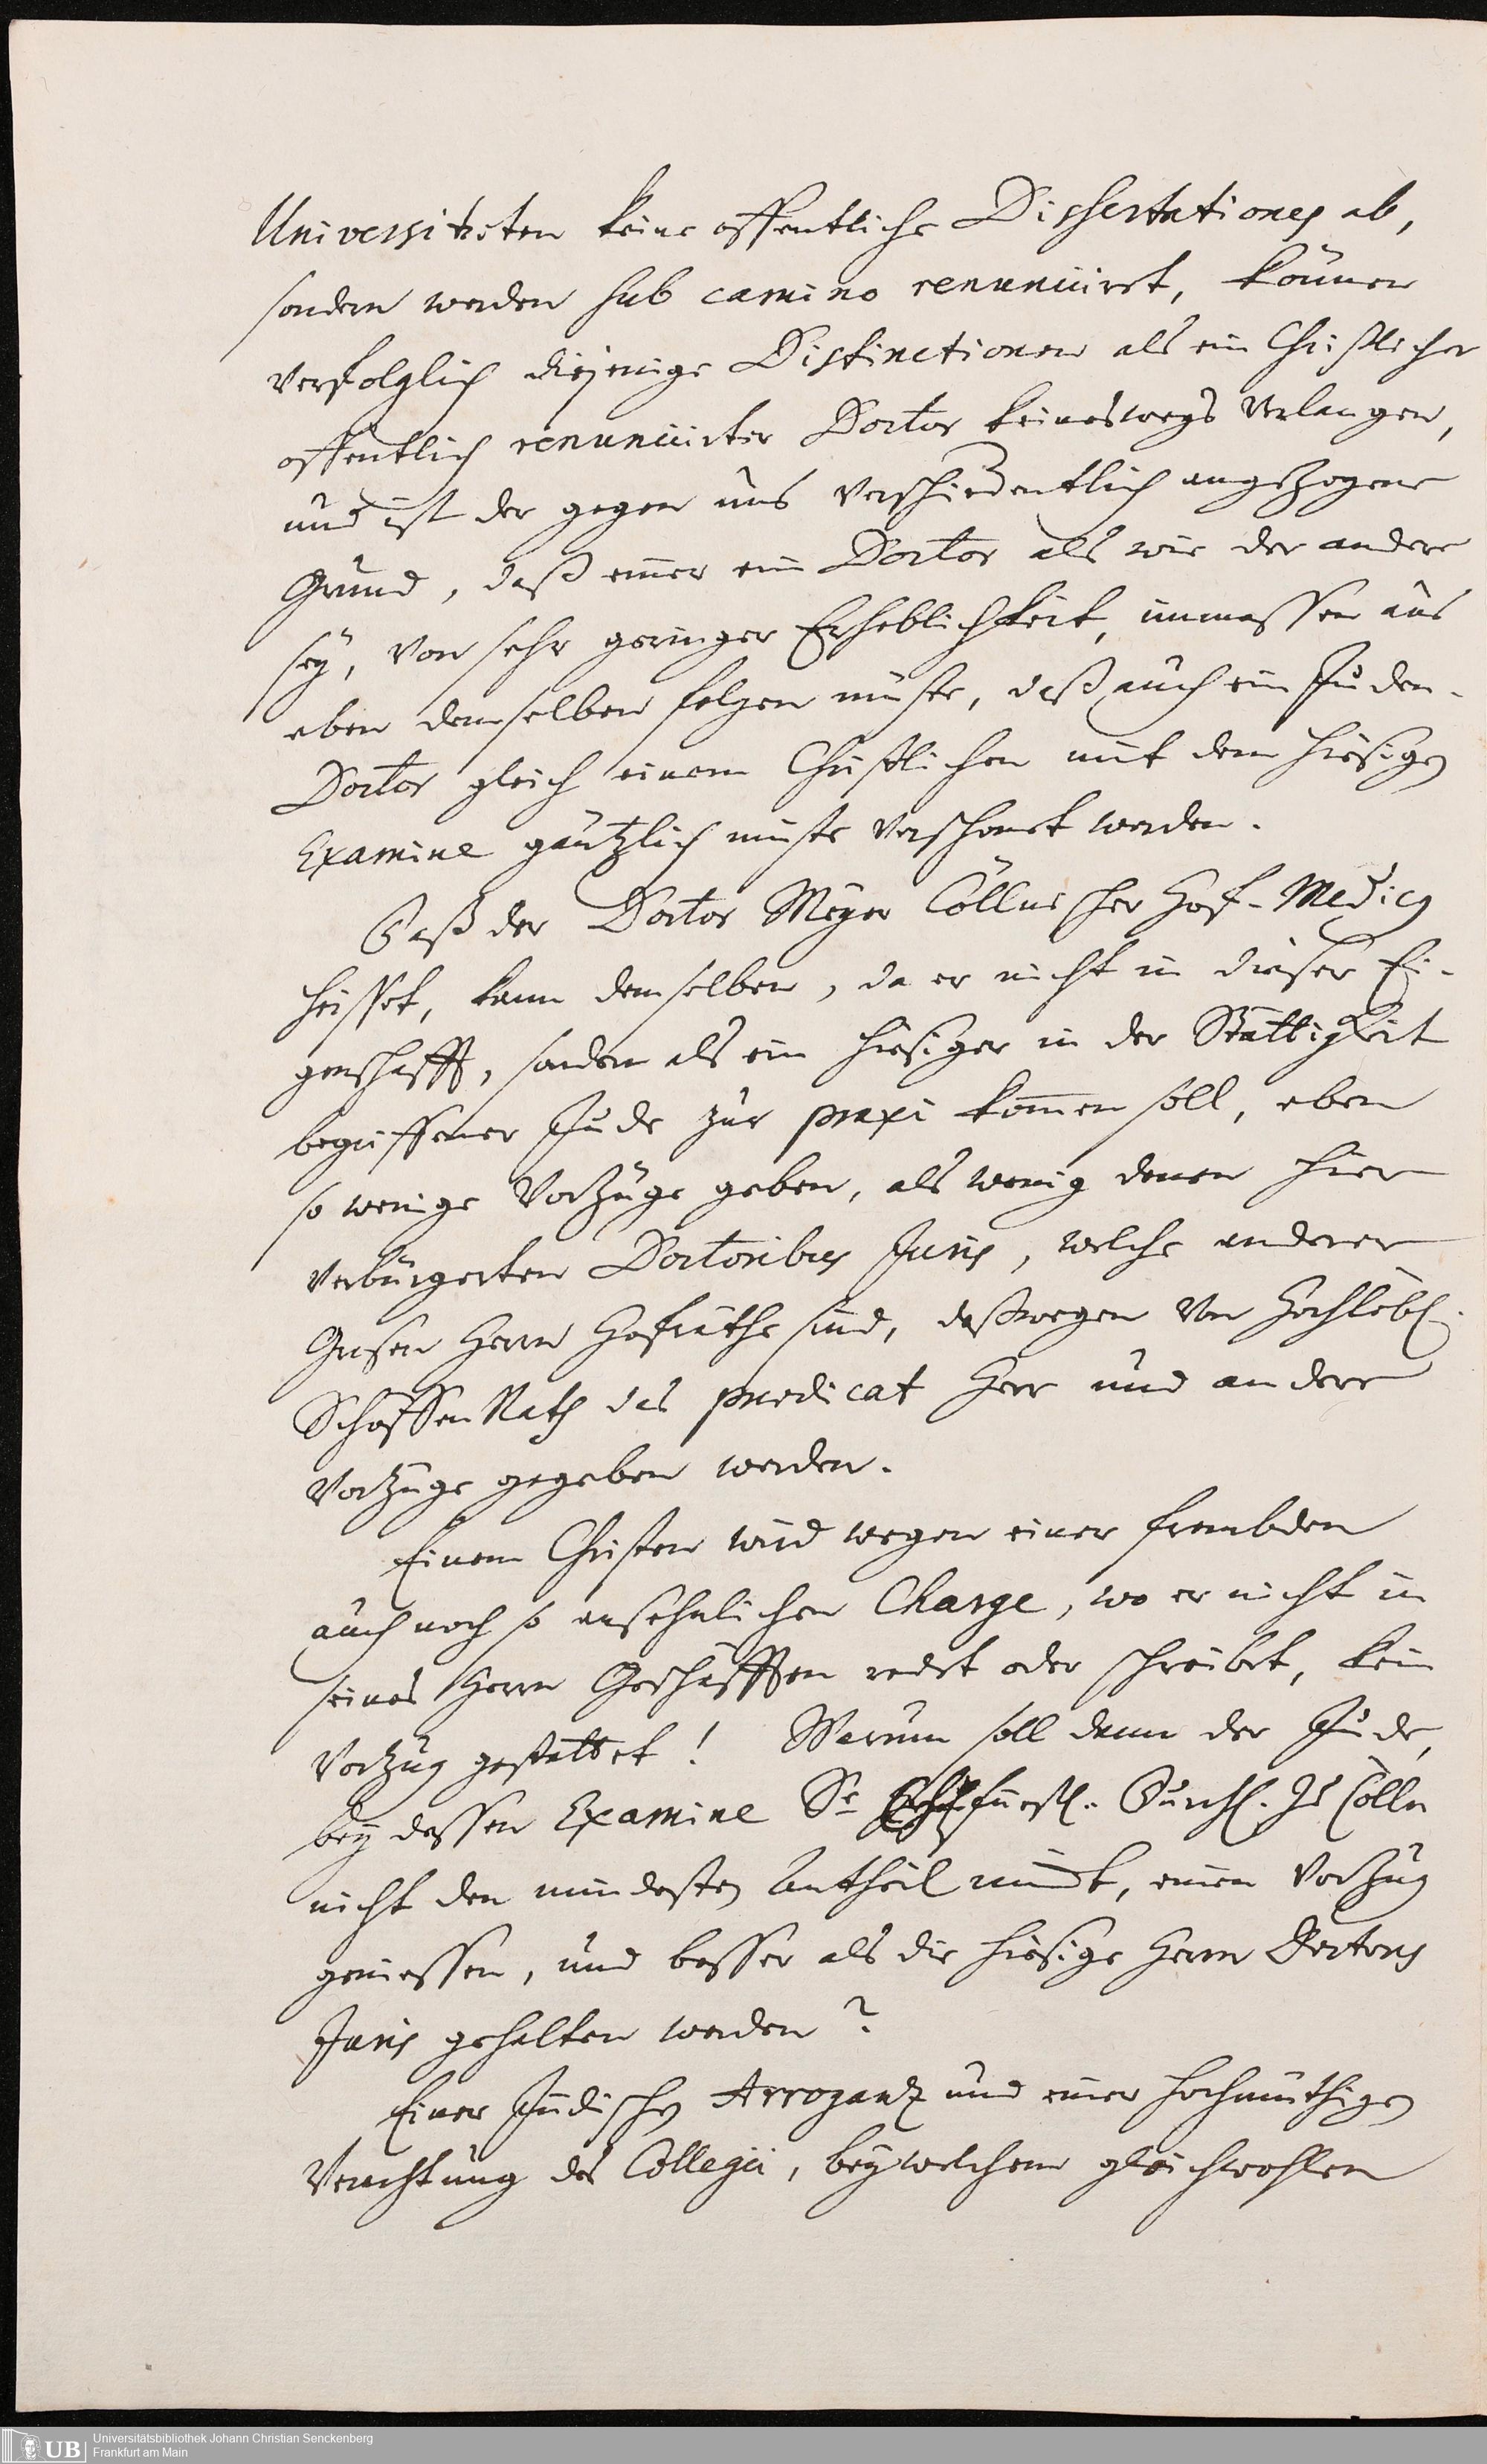 Universitäten keine offentliche Dissertationes ab,
sondern werden sub camino renunciiret, können
verfolglich diejenige Distinctionen als ein Christlicher
offentlich renunciirter Doctor keineswegs verlangen,
und ist der gegen uns verschiedentlich angezogene
Grund, daß einer ein Doctor als wie der andere
seÿ, von sehr geringer Erheblichkeit, immassen aus
eben demselben folgen müste, daß auch ein Juden-
Doctor gleich einem Christlichen mit dem hiesigen
Examine gäntzlich müste verschonet werden.
Daß der Doctor Meÿer Cöllnischer Hof-Medicus
heisset, kann demselben, da er nicht in dieser Ei-
genschafft, sondern als ein hiesiger in der Stättigkeit
begriffener Jude zur praxi kommen soll, eben
so wenige Vorzüge geben, als wenig denen hier
verbürgerten Doctoribus Juris, welche anderer
Grosen Herrn Hofräthe sind, deßwegen von Hochlöbl.
Schöffen Rath das praedicat Herr und andere
Vorzüge gegeben werden.
Einem Christen wird wegen einer frembden
auch noch so ansehnlichen Charge, wo er nicht in
seines Herrn Geschäfften redet oder schreibet, kein
Vorzug gestattet! Warum soll dann der Jude,
beÿ dessen Examine Se Churfürstl. Durchl. zu Cölln
nicht den mindesten Antheil nimbt, einen Vorzug
geniessen, und besser als die hiesige Herrn Doctores
Juris gehalten werden?
Einer Jüdischen Arroganz und einer hochmüthigen
Verachtung des Collegii, beÿ welchem gleichwohlen
Universitätsbibliothek Johann Christian Senckenberg
UB Frankfurt am Main